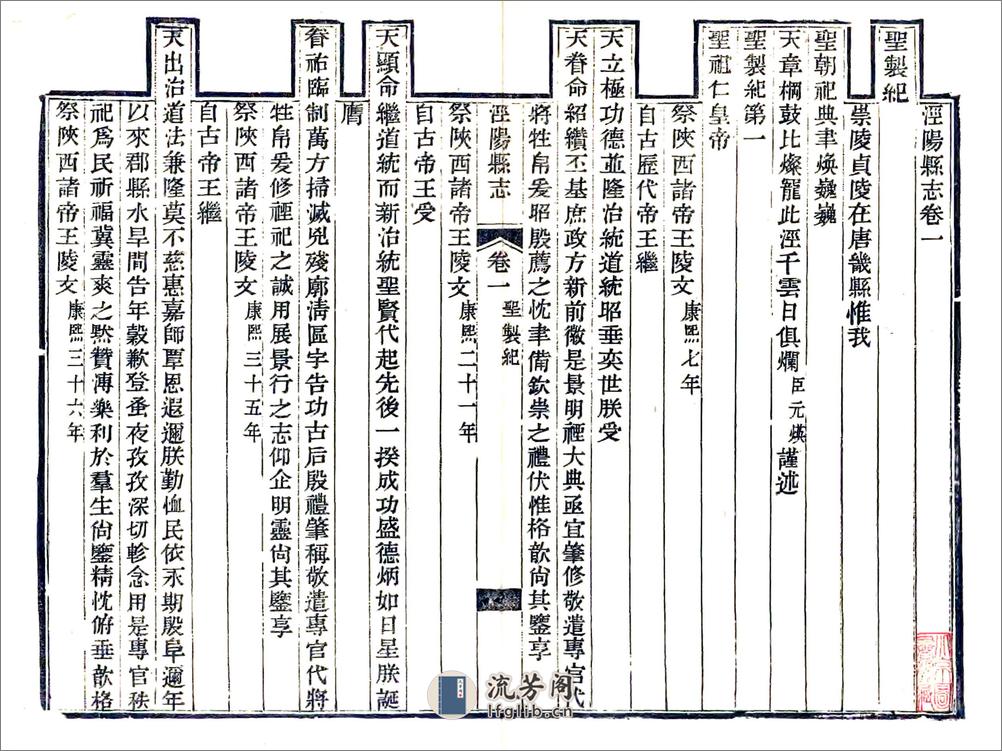 涇陽縣志卷一
聖製紀
崇陵貞陵在唐畿縣惟我
聖朝祀典聿煥巍巍
天章楬鼓比燦龍此涇千雲日俱爛臣元煐謹述
聖製紀第一
聖祖仁皇帝
祭陝西諸帝王陵文康熙七年
自古歷代帝王繼
天立極功德並隆治統道統昭垂奕世朕受
天眷命紹纘丕基庶政方新前徽是景明禋大典亟宜肇修敬遣專官代
將牲帛爰昭殷薦之忱聿備欽崇之禮伏惟格歆尙其鑒享
涇陽縣志
卷一
聖製紀
祭陝西諸帝王陵文康熙二十一年
自古帝王受
天顯命繼道統而新治統聖賢代起先後一揆成功盛德炳如日星朕誕
膺
眷祐臨制萬方掃滅兇殘廓淸區宇告功古后殷禮肇稱敬遣專官代將
牲帛爰修禋祀之誠用展景行之志仰企明靈尙其鑒享
祭陝西諸帝王陵文康熙三十五年
自古帝王繼
天出治道法兼隆莫不慈惠嘉師覃恩遐邇朕勤恤民依永期殷阜邇年
以來郡縣水旱間告年穀歉登蚤夜孜孜深切軫念用是專官秩
祀爲民祈福冀靈爽之默贊溥樂利於羣生尙鑒精忱俯垂歆格
祭陝西諸帝王陵文康熙三十六年
流芳阁
lfglib.cn